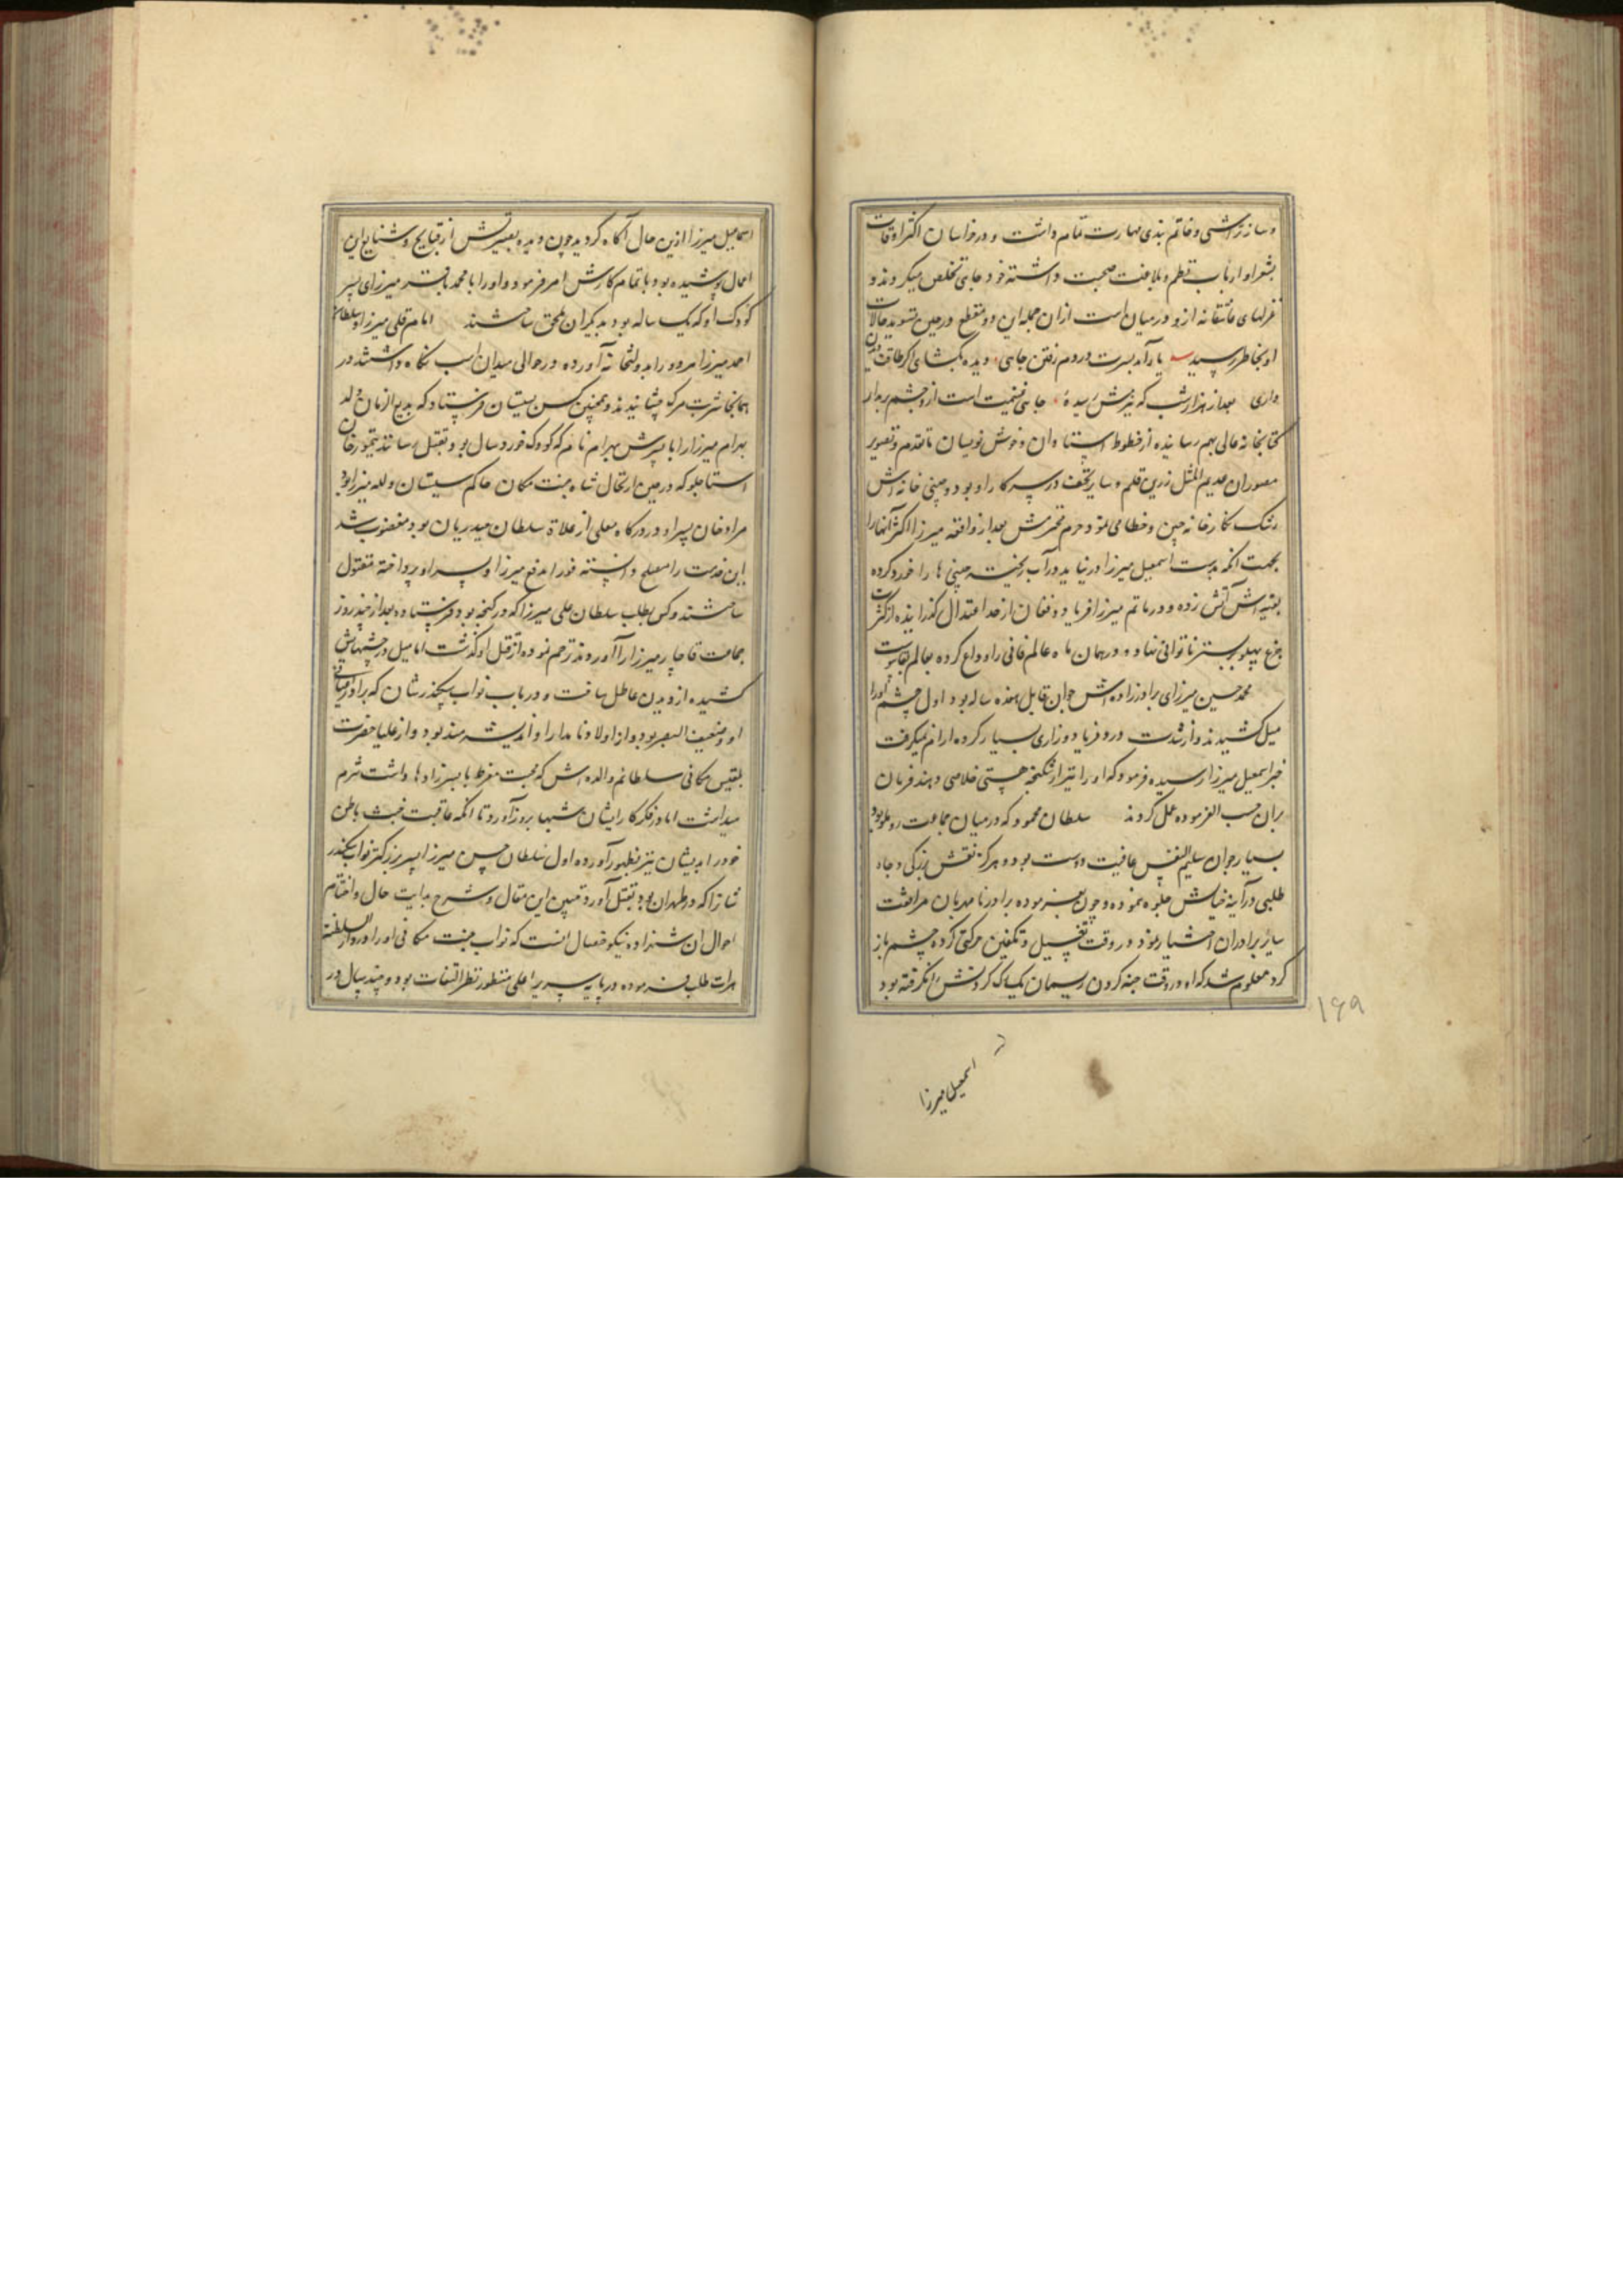 و ساز تراشی و خاتم بندی مهارت تمام داشت و در خراسان اکثر اوقات
بشعرا و ارباب نظم و بلاغت صحبت داشته خود جاهی تخلص میکردند و
غزلهای عاشقانه ازو در میان است از ان جمله این دو مقطع در حین تسوید حالات
او بخاطر رسید یار آمد بسرت در دم رفتن جاهی دیده بگشای اگر طاقت دیدن
داری بعد از هزار شب که بزمش رسیدهٔ جاهی غنیمت است ازو چشم برمدار
کتابخانه عالی بهم رسانیده از خطوط استادان و خوش نویسان ماتقدم و تصویر
مصوران عدیم المثل زرین قلم و سایر تحف در سرکار او بود و چینی خانه اش
رشک نگارخانه چین و خطا می نمود حرم محترمش بعد از واقعه میرزا اکثر آنها را
بجهت انکه بدست اسمعیل میرزا در نیاید در آب ریخته چینی ها را خورد کرده
بقیه اش آتش زده و در ماتم میرزا فریاد و فغان از حد اعتدال گذرانیده از کثرت
جزع پهلو ببستر ناتوانی نهاد و در همان ماه عالم فانی را وداع کرده بعالم بقا پیوست
محمد حسین میرزای برادرزاده اش جوان قابل هفده ساله بود اول چشم او را
میل کشیدند و از شدت درد فریاد و زاری بسیار کرده ارام نمیگرفت
خبر اسمعیل میرزا رسیده فرمود که او را نیز از شکنجه هستی خلاصی دهند فرمان
بران حسب الفرموده عمل کردند سلطان محمود که در میان جماعت روملو بود
بسیار جوان سلیم النفس عافیت دوست بود و هرگز نقش بزرگی و جاه
طلبی در آینه خیالش جلوه ننموده و چون بفرموده برادر نامهربان مرافقت
سایر برادران اختیار نمود در وقت تغسیل و تکفین حرکتی کرده چشم باز
کرد معلوم شد که او در وقت خبه کردن ریسمان یک یک گردنش را نگرفته بود
۱۶۹
اسمعیل میرزا
اسماعیل میرزا ازین حال آگاه گردید چون دیده بصیرتش از قبایح و شنایع این
اعمال پوشیده بود باتمام کارش امر فرمود و او را با محمد باقر میرزای پسر
کودک او که یک ساله بود بدیگران ملحق ساختند امام قلی میرزا و سلطان
احمد میرزا هر دو را بدولتخانه آورده در حوالی میدان اسب نگاه داشتند در
همانجا شربت مرگ چشانیدند و همچنین کس بسیستان فرستاد که بدیع الزمان ولد
بهرام میرزا را با پسرش بهرام نام که کودک خوردسال بود بقتل رسانند تیمور خان
استاجلو که در حین ارتحال شاه جنت مکان حاکم سیستان و لله میرزا بود
مراد خان پسر او در درگاه معلی از غلاة سلطان حیدریان بود مغضوب شد
این خدمت را مصلح دانسته فورا بدفع میرزا و پسر او پرداخته مقتول
ساختند و کس بطلب سلطان علی میرزا که در گنجه بود فرستاده بعد از چند روز
جماعت قاجار میرزا را آوردند ترحم نموده از قتل او گذشت اما میل در چشمهایش
کشیده از دیدن عاطل ساخت و در باب نواب سکندر شان که برادر اعیانی
او و ضعیف البصر بود و از اولاد نامدار او اندیشه مند بود و از علیا حضرت
بلقیس مکانی سلطانم والده اش که محبت مفرط با میرزاده ها داشت شرم
میداشت اما در فکر کار ایشان شبها بروز آورد تا انکه عاقبت خبث باطن
خود را بدیشان نیز بظهور آورده اول سلطان حسن میرزا پسر بزرگتر نواب سکندر
شان را که در طهران بود بقتل آورد تبیین این مقال و شرح بدایت حال و اختتام
احوال ان شهزاده نیکو خصال انست که نواب جنت مکانی او را در دار السلطنه
هرات طلب فرموده در پایه سریر اعلی منظور نظر التفات بود و چند سال در